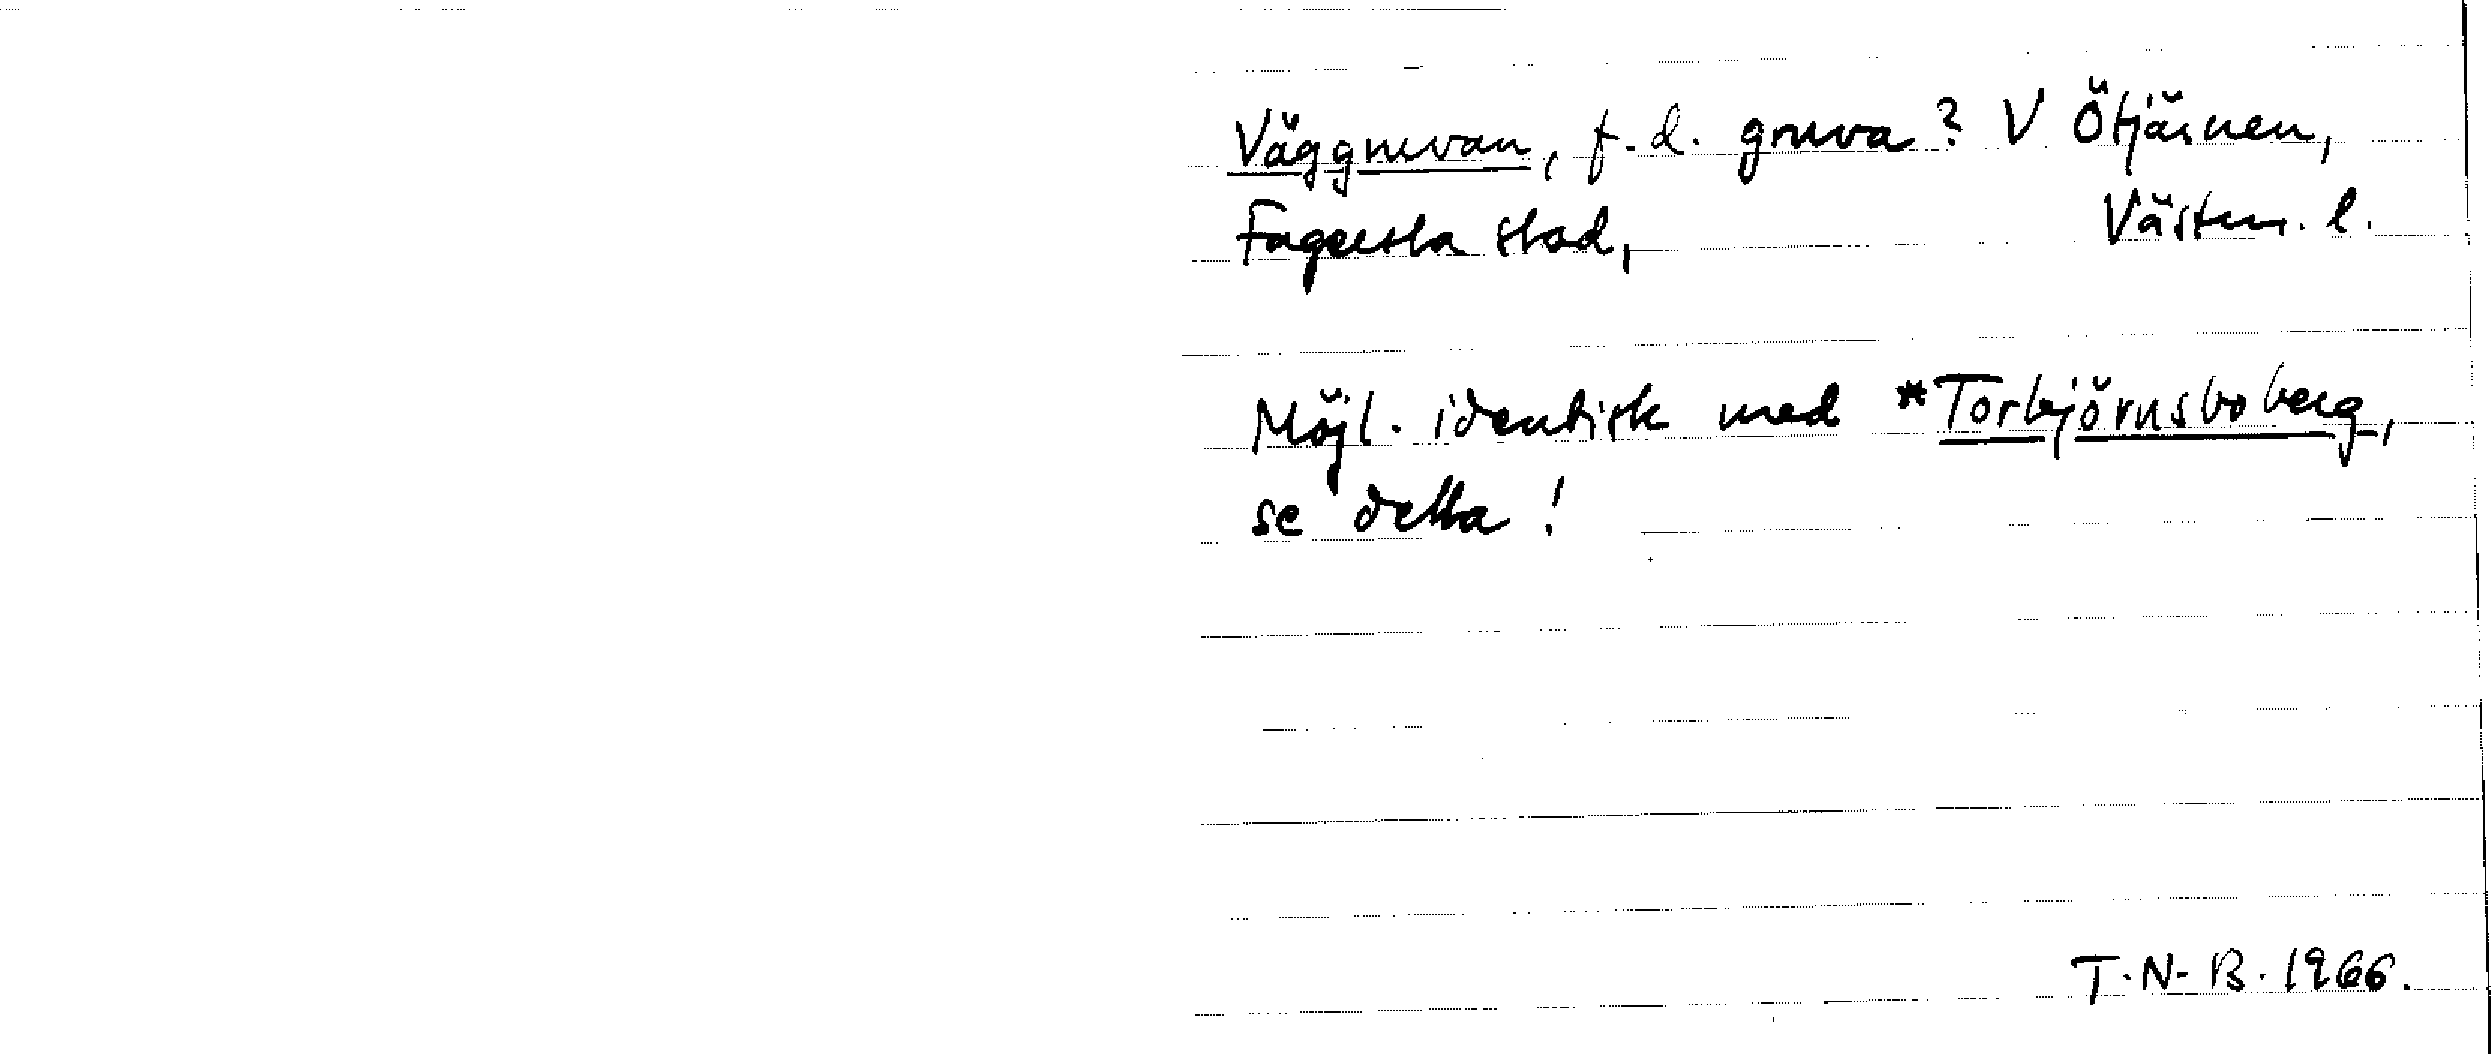 Väggruvan, f.d. gruva? V Ötjärnen,
Fagersta stad, Västm. l.
Möjl. identisk med *Torbjörnsboberg,
se detta!
T.N.B. 1966.